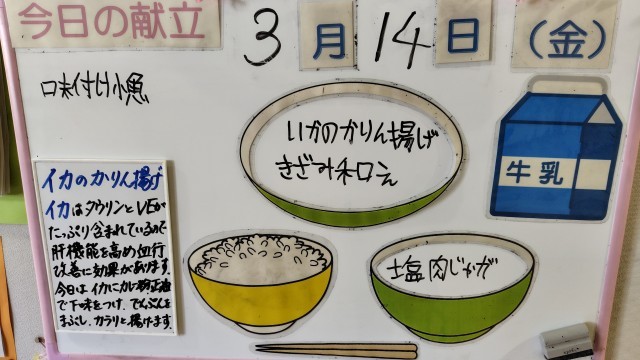 今日の献立
3月14日(金)
味付け小魚
いかのかりん揚げ
きざみ和ロえ
牛乳
塩肉じゃが
イカのかりん揚げ
イカはタウリンとVEが
たっぷり含まれているので
肝機能を高め血行
改善に効果があります。
今日はイカにカレー粉と正油
で下味をつけ、でんぷんを
まぶし、カラリと揚げます。